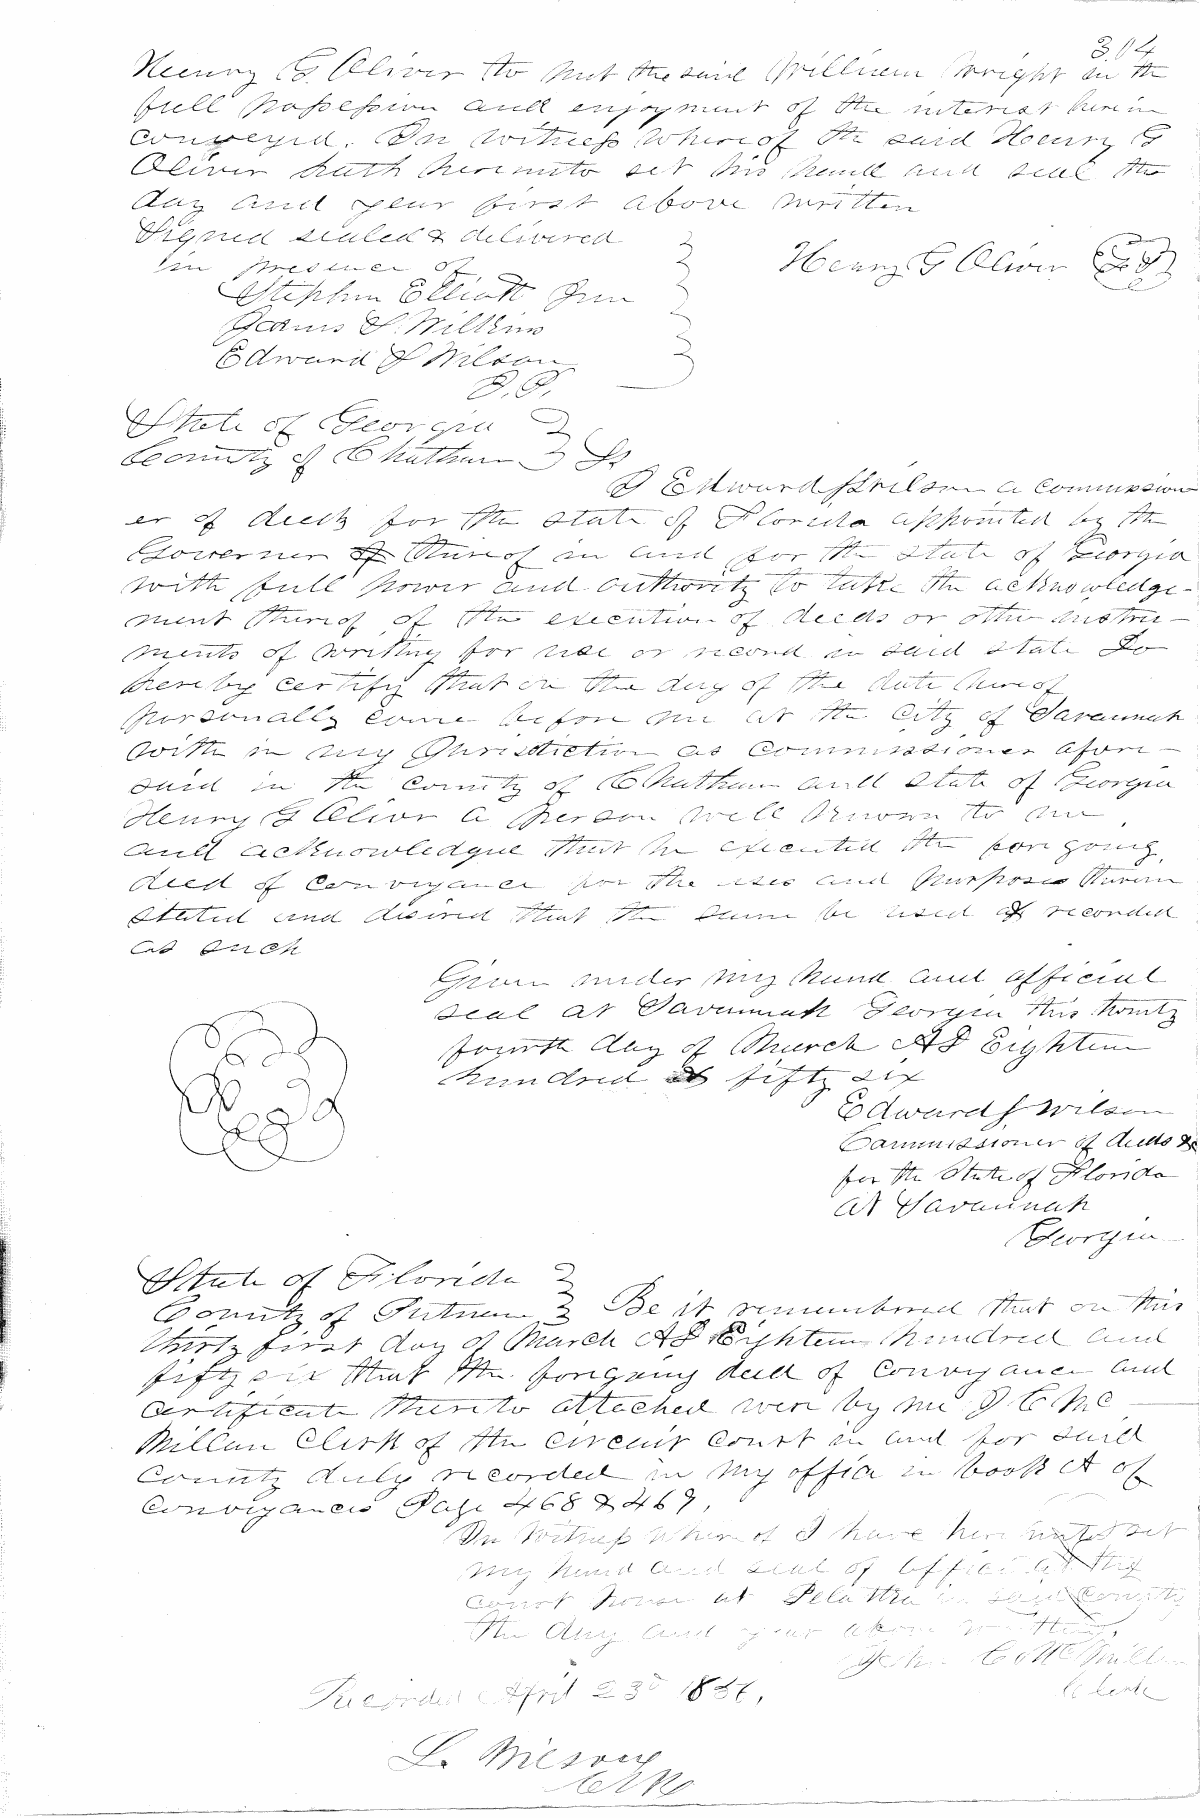 304
Henry G Oliver to put the said William Wright in the
full possession and enjoyment of the interest herein
conveyed. In witness whereof the said Henry G
Oliver hath hereunto set his hand and seal the
day and year first above written
Signed sealed & delivered
in presence of
Henry G Oliver
Stephen Elliott Jun
James S. Wilkins
Edward J Wilson
State of Georgia
County of Chatham
I Edward J Wilson a commission
er of deeds for the state of Florida appointed by the
Governer thereof in and for the state of Georgia
with full power and authority to take the acknowledge-
ment thereof of the execution of deeds or other instru-
ments of writing for use or record in said state Do
hereby certify that on the day of the date hereof
personally came before me at the City of Savannah
with in my Jurisdiction as Commissioner afore-
said in the county of Chatham and state of Georgia
Henry G Olivr a person well known to me
and acknowledgue that he executed the foregoing
deed of conveyance for the uses and purposes therein
stated and desired that the same be used & recorded
as such
Given under my hand and official
seal at Savannah Georgia this twenty
fourth day of March AD Eighteen
hundred & fifty six
Edward J Wilson
Commissioner of deeds &c
for the State of Florida
at Savannah
Georgia
State of Florida
County of Putnam Be it remembered that on this
thirty first day of March AD Eighteen hundred and
fifty six that the foregoing deed of conveyance and
certificate thereto attached were by me J C Mc
Millan Clerk of the circuit court in and for said
County duly recorded in my office in book A of
Conveyances Page 468 & 469.
In Witness where of I have here unto set
my hand and seal of office at the
court house at Pelatka in said county
the day and year above written.
John C McMillan
Clerk
Recorded April 23d 1856.